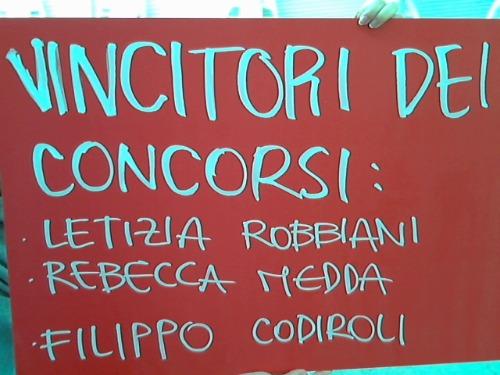 VINCITORI DEI
CONCORSI:
· LETIZIA ROBBIANI
· REBECCA MEDDA
· FILIPPO CODIROLI